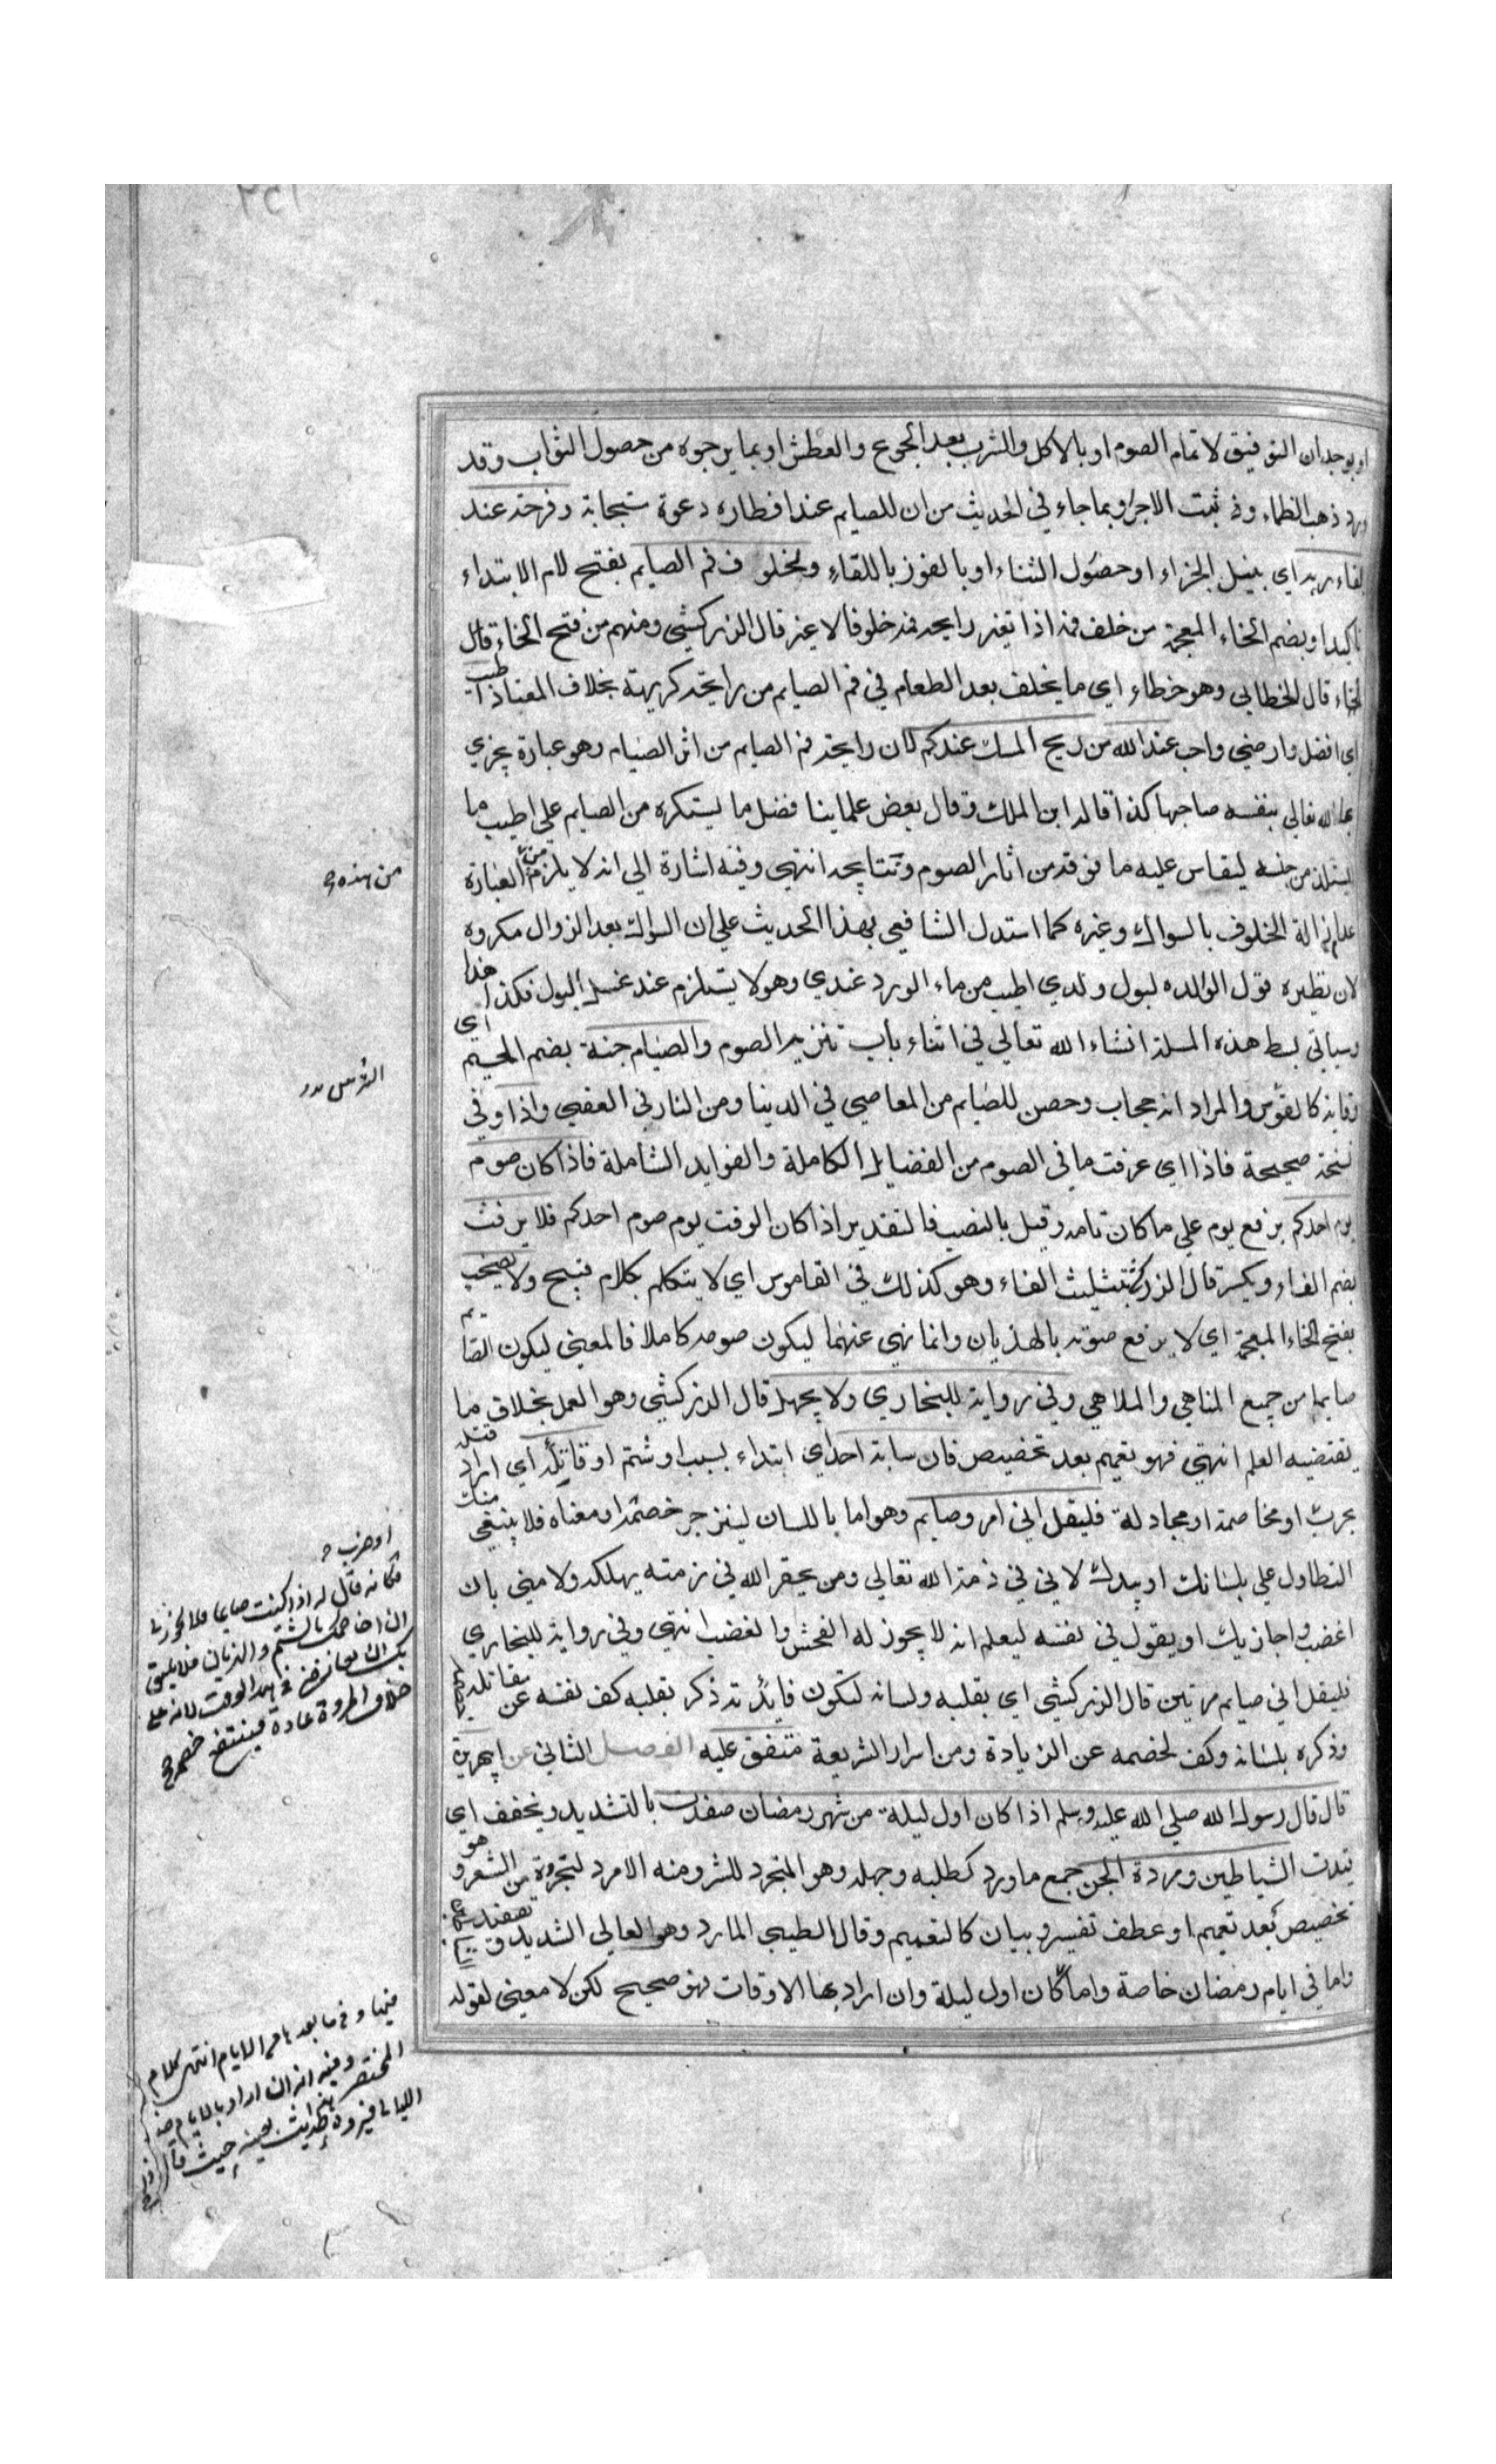 او بوجدان التوفيق لاتمام الصوم او بالاكل والشرب بعد الجوع والعطش او بما يرجوه من حصول الثواب وقد
ورد ذهب الظماء وثبت الاجر او بما جاء في الحديث من ان للصايم عند افطاره دعوة ستجابة وفرحة عند
لقاء ربه اي بنيل الجزاء او حصول الثناء او بالفوز باللقاء ولخلوف فم الصايم بفتح لام الابتداء
تاكيدا وبضم الخاء المعجمة من خلف فمه اذا تغير رايحة فمه خلوفا لا غير قال الزركشي ومنهم من فتح الخاء قال
الخاء قال الخطابي وهو خطاء اي ما يخلف بعد الطعام في فم الصايم من رايحة كريهة بخلاف المعتاد اطيب
اي افضل وارضي واحب عند الله من ريح المسك عندكم لان رايحة فم الصايم من اثر الصيام وهو عبادة يجزي
بها الله تعالي بنفسه صاحبها كذا قاله ابن الملك وقال بعض علماينا فضل ما يستكره من الصايم علي اطيب ما
يستلذ من جنسه ليقاس عليه ما فوقه من اثار الصوم ونتايجه انتهي وفيه اشارة الي انه لا يلزم من العبارة
عدم ازالة الخلوف بالسواك وغيره كما استدل الشافعي بهذا الحديث علي ان السواك بعد الزوال مكروه
لان نظيره قول الوالده لبول ولدي اطيب من ماء الورد عندي وهو لا يستلزم عند غسل البول فكذا هذا
وسياتي بسط هذه المسلة انشاء الله تعالي في اثناء باب تنزيه الصوم والصيام جنة بضم الجيم اي
وقاية كالقوس والمراد انه حجاب وحصن للصايم من المعاصي في الدنيا ومن النار في العقبي واذا وفي
نسخة صحيحة فاذا اي عرفت ما في الصوم من الفضايل الكاملة والفوايد الشاملة فاذا كان صوم
يوم احدكم برفع يوم علي ما كان تامه وقيل بالنصب فالتقدير اذا كان الوقت يوم صوم احدكم فلا يرفث
بضم الفاء ويكسر قال الزركشي بتثليث الفاء وهو كذلك في القاموس اي لا يتكلم بكلام قبيح ولا يصخب
بفتح الخاء المعجمة اي لا يرفع صوته بالهذيان وانما نهي عنهما ليكون صومه كاملا فالمعني ليكون الصايم
صايما من جميع المناهي والملاهي وفي رواية للبخاري ولا يجهل قال الزركشي وهو العمل بخلاف ما
يقتضيه العلم انتهي فهو تعميم بعد تخصيص فان سابه احد اي ابتداء بسب او شتم او قاتله اي اراد قتله
بحرب او مخاصمة او مجادلة فليقل اني امرو صايم وهو اما باللسان لينزجر خصمه او معناه فلا ينبغي منك
التطاول علي بلسانك او بيدك لاني في ذمة الله تعالي ومن يحقر الله في ذمته يهلكه ولا مني بان
اغضب واجازيك او يقول في نفسه ليعلم انه لا يجوز له الفحش والغضب انتهي وفي رواية للبخاري
فليقل اني صايم مرتين قال الزركشي اي بقلبه ولسانه لتكون فايدة ذكر بقلبه كف نفسه عن مقاتله
وذكره بلسانه وكف لخصمه عن الزيادة ومن اسرار الشريعة متفق عليه الفصل الثاني عن ابي هريرة
قال قال رسول الله صلي الله عليه وسلم اذا كان اول ليلة من شهر رمضان صفدت بالتشديد ويخفف اي
قيدت الشياطين ومردة الجن جمع مارد كطلبه وجهله وهو المتجرد للشر ومنه الامرد لتجرده من الشعر وهو
تخصيص بعد تعميم او عطف تفسير وبيان كالتعميم وقال الطيبي المارد وهو العالي الشديد وتصفيد
واما في ايام رمضان خاصة واما كان اول ليلة وان اراد بها الاوقات فهو صحيح لكن لا معني لقوله
من هذه
الترس
او ضرب
فكانه قال له اذا كنت صايما فلا يجوز لي
ان اخاصمك بالشتم والهذيان فلا يليق
بك ان تعارضني في هذا الوقت لانه علي
خلاف المروة عادة فيندفع خصمه
فيها وفيما بعد باحد الايام انتهي كلام
المختصر وفيه انه ان اراد بالايام
الليالي فيرده الحديث بعينه حيث قال